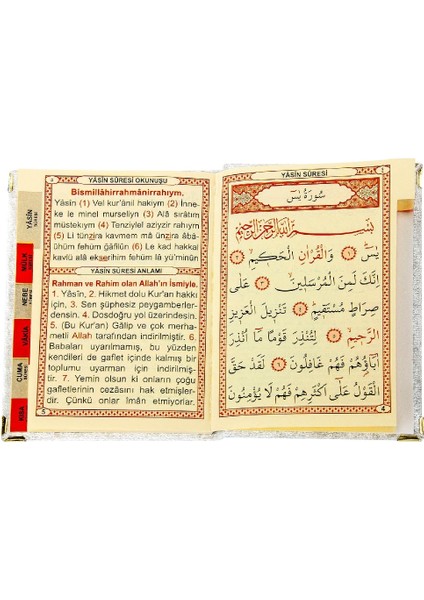 YÂSÎN SÛRESİ OKUNUŞU
Bismillâhirrahmânirrahıym.
Yâsîn (1) Vel kur'ânil hakiym (2) İnne-
ke le minel murseliyn (3) Alâ sırâtım
müstekıym (4) Tenziylel aziyzir rahıym
(5) Li tünzira kavmem mâ ünzira âbâ-
ühüm fehüm ğâfilûn (6) Le kad hakkal
kavlü alâ ekserihim fehüm lâ yü'minûn
YÂSÎN SÛRESİ ANLAMI
Rahman ve Rahim olan Allah'ın İsmiyle.
1. Yâsîn, 2. Hikmet dolu Kur'an hakkı
için, 3. Sen şüphesiz peygamberler-
densin. 4. Dosdoğru yol üzerindesin.
5. (Bu Kur'an) Gâlip ve çok merha-
metli Allah tarafından indirilmiştir. 6.
Babaları uyarılmamış, bu yüzden
kendileri de gaflet içinde kalmış bir
toplumu uyarman için indirilmiş-
tir. 7. Yemin olsun ki onların çoğu
gafletlerinin cezasını hak etmişler-
dir. Çünkü onlar İmân etmiyorlar.
5
YÂSÎN
MÜLK
NEBE
VÂKIA
CUMA
KISA
YÂSÎN SÛRESİ
سُورَةُ يٰسٓ
بِسْمِ اللّٰهِ الرَّحْمٰنِ الرَّحِيمِ
يٰسٓ ﴿١﴾ وَالْقُرْاٰنِ الْحَكِيمِ ﴿٢﴾
اِنَّكَ لَمِنَ الْمُرْسَلِينَ ﴿٣﴾ عَلٰى
صِرَاطٍ مُسْتَقِيمٍ ﴿٤﴾ تَنْزِيلَ الْعَزِيزِ
الرَّحِيمِ ﴿٥﴾ لِتُنْذِرَ قَوْمًا مَٓا اُنْذِرَ
اٰبَٓاؤُ۬هُمْ فَهُمْ غَافِلُونَ ﴿٦﴾ لَقَدْ حَقَّ
الْقَوْلُ عَلٰٓى اَكْثَرِهِمْ فَهُمْ لَا يُؤْمِنُونَ
4